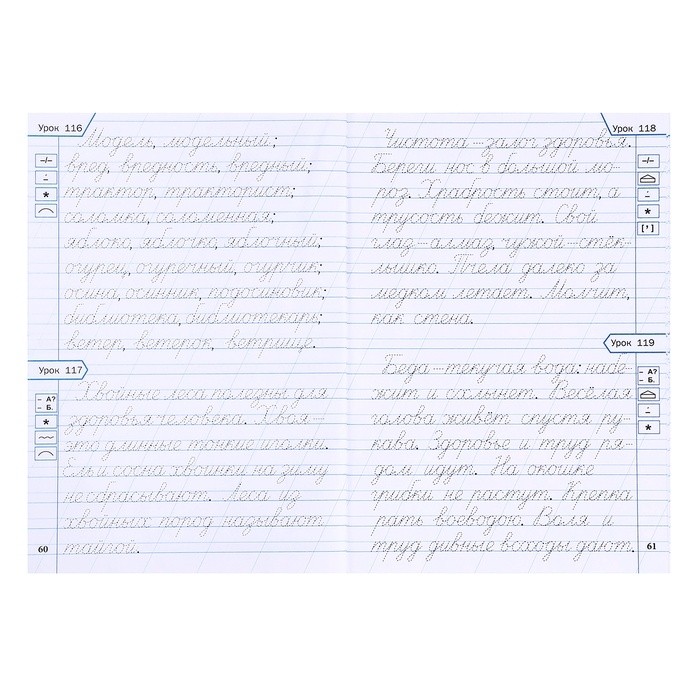 Урок 116
Модель, модельный;
вред, вредность, вредный;
трактор, тракторист;
соломка, соломенная;
яблоко, яблочко, яблочный;
огурец, огуречный, огурчик;
осина, осинник, подосиновик;
библиотека, библиотекарь;
ветер, ветерок, ветрище.
Урок 117
– А?
– Б.
Хвойные леса полезны для
здоровья человека. Хвоя —
это длинные тонкие иголки.
Ель и сосна хвоинки на зиму
не сбрасывают. Леса из
хвойных пород называют
тайгой.
60
Урок 118
[']
Чистота — залог здоровья.
Береги нос в большой мо-
роз. Храбрость стоит, а
трусость бежит. Свой
глаз — алмаз, чужой — стёк-
лышко. Пчела далеко за
медком летает. Молчит,
как стена.
Урок 119
– А?
– Б.
Беда — текучая вода: набе-
жит и схлынет. Весёлая
голова живёт спустя ру-
кава. Здоровье и труд ря-
дом идут. На окошке
грибки не растут. Крепка
рать воеводою. Воля и
труд дивные всходы дают.
61